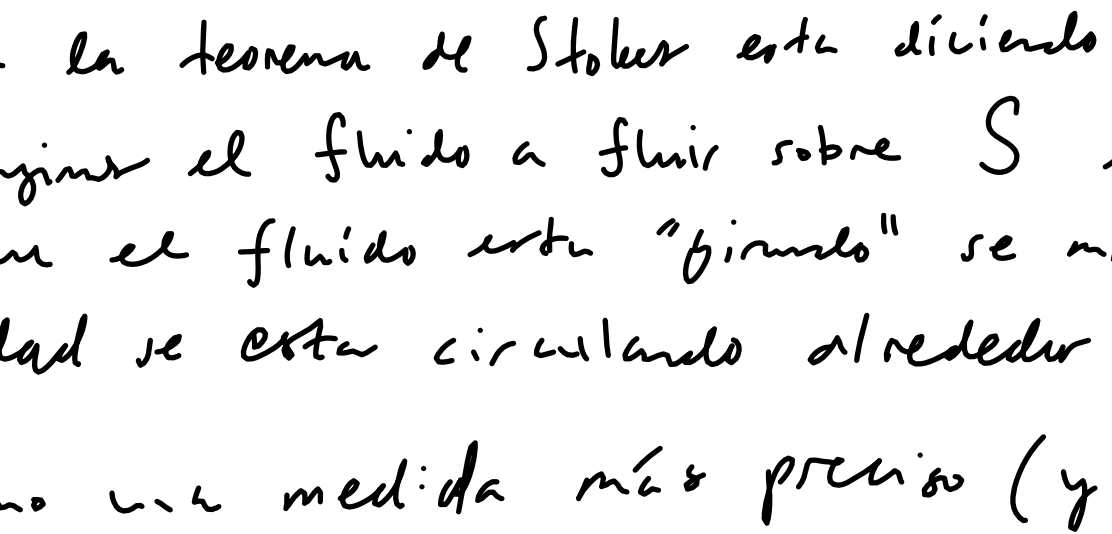 la teorema de Stokes esta diciendo
el fluido a fluir sobre S
el fluido esta "girando" se
se esta circulando alrededor
una medida más preciso (y